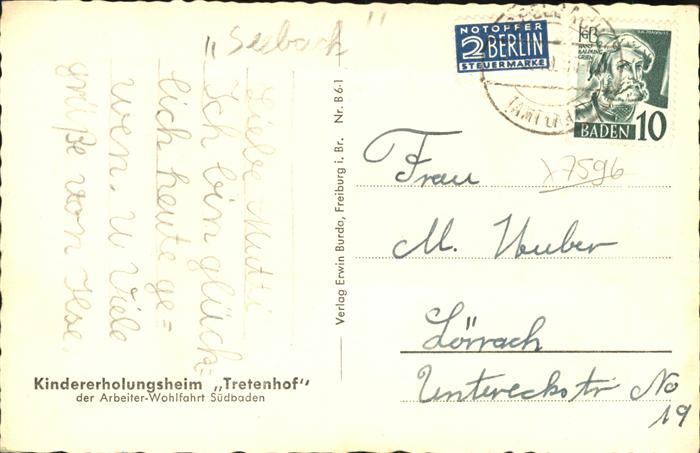 „Seebach"
Liebe Mutti
Ich bin glück=
lich heute ge=
wen. u Viele
grüße von Ilse.
Kindererholungsheim „Tretenhof"
der Arbeiter-Wohlfahrt Südbaden
Verlag Erwin Burda, Freiburg i. Br. Nr. B 6-1
NOTOPFER
2 BERLIN
STEUERMARKE
HANS
BALDUNG
GRIEN
BADEN 10
7596
Frau
M. Huber
Lörrach
Untereckstr No
19